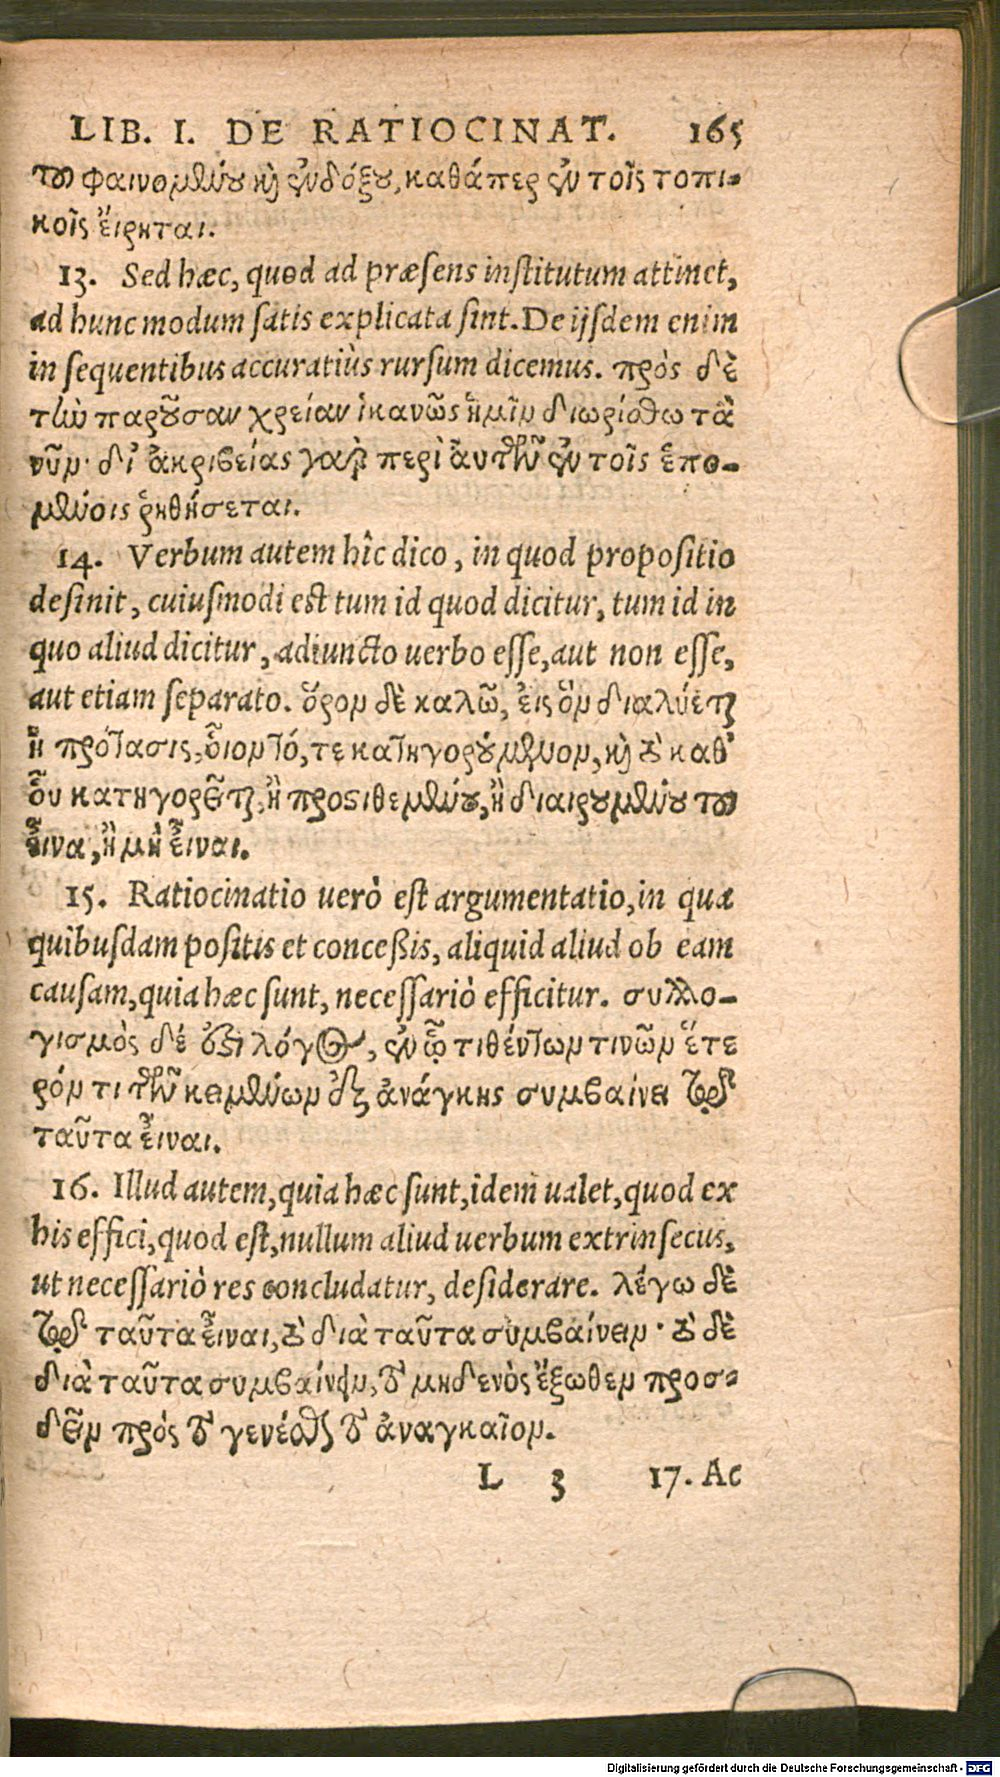 LIB. I. DE RATIOCINAT. 165
τȣ φαινομλύȣ ϗ ἐνδόξȣ, καθάπερ ἐν τοῖς τοπι-
κοῖς ἔιρηται.
13. Sed hæc, quod ad præsens institutum attinet,
ad hunc modum satis explicata sint. De ijsdem enim
in sequentibus accuratiùs rursum dicemus. πρός δὲ
τὴν παρȣ͂σαν χρείαν ἱκανῶς ἡμῖν διωρίσθω τὰ
νῦν· δι᾽ ἀκριβείας γὰρ περὶ ἀυτῶν ἐν τοῖς ἑπο-
μένοις ῥηθήσεται.
14. Verbum autem hîc dico, in quod propositio
desinit, cuiusmodi est tum id quod dicitur, tum id in
quo aliud dicitur, adiuncto uerbo esse, aut non esse,
aut etiam separato. ὅρον δὲ καλῶ, ἐις ὃν διαλύεται
ἡ πρότασις, οἷον τό, τε κατηγορȣ́μενον, ϗ τὸ καθ᾽
οὗ κατηγορεῖται, ἢ προστιθεμένȣ, ἢ διαιρȣμένȣ τȣ
εἶναι, ἢ μὴ εἶναι.
15. Ratiocinatio uerò est argumentatio, in qua
quibusdam positis et conceßis, aliquid aliud ob eam
causam, quia hæc sunt, necessariò efficitur. συλλο-
γισμὸς δέ ἐστι λόγος, ἐν ᾧ τιθέντων τινῶν ἕτε
ρόν τι τῶν κειμένων ἐξ ἀνάγκης συμβαίνει τῷ
ταῦτα εἶναι.
16. Illud autem, quia hæc sunt, idem ualet, quod ex
his effici, quod est, nullum aliud uerbum extrinsecus,
ut necessariò res concludatur, desiderare. λέγω δὲ
τῷ ταῦτα εἶναι, τὸ διὰ ταῦτα συμβαίνειν· τὸ δὲ
διὰ ταῦτα συμβαίνειν, τὸ μηδενὸς ἔξωθεν προσ-
δεῖν πρός τὸ γενέσθαι τὸ ἀναγκαῖον.
L 3 17. Ac
Digitalisierung gefördert durch die Deutsche Forschungsgemeinschaft - DFG